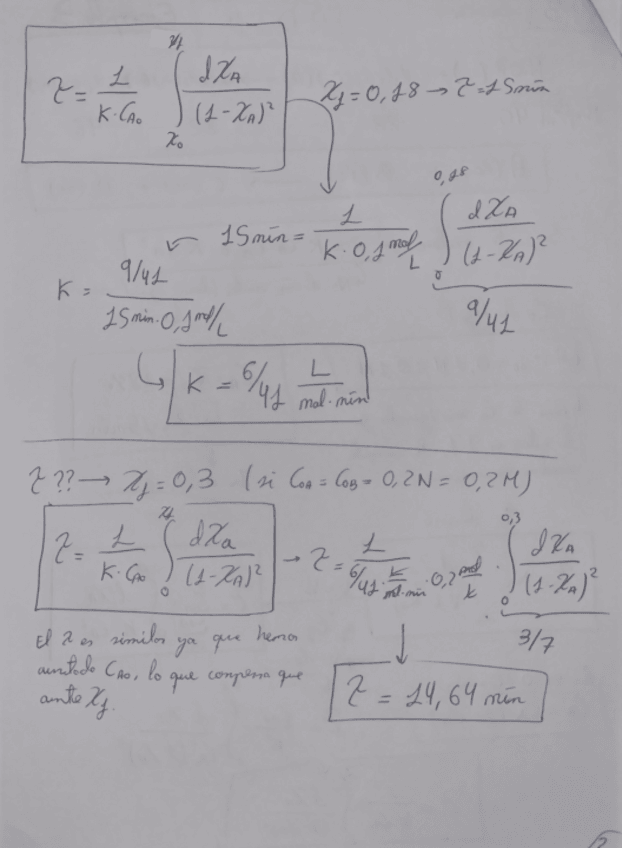 τ = 1/(K·C_A0) ∫_{x_0}^{x_f} dX_A/(1-X_A)²
X_f = 0,18 → τ = 15 min
15 min = 1/(K·0,1 mol/L) ∫_0^{0,18} dX_A/(1-X_A)²
9/41
K = (9/41)/(15 min·0,1 mol/L)
K = 6/41 L/(mol·min)
τ ?? → X_f = 0,3 (si C_OA = C_OB = 0,2N = 0,2M)
τ = 1/(K·C_A0) ∫_0^{x_f} dX_a/(1-X_A)² → τ = 1/(6/41·L/(mol·min)·0,2 mol/L) · ∫_0^{0,3} dX_A/(1-X_A)²
3/7
El τ es similar ya que hemos
C_A0, lo que compensa que
X_f.
τ = 14,64 min